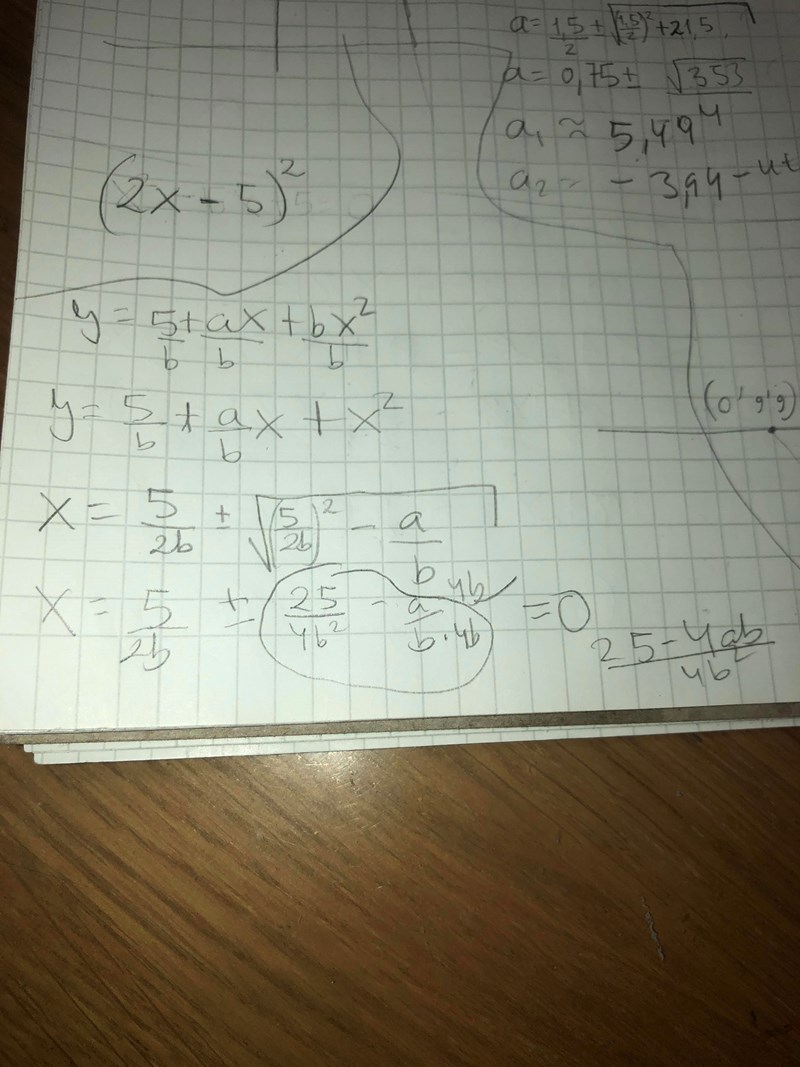 a = 1,5/2 ± √(1,5/2)² + 21,5
a = 0,75 ± √353
a₁ ≈ 5,494
a₂ = - 3,94
(2x - 5)²
y = 5/b + ax/b + bx²/b
y = 5/b + a/b x + x²
x = 5/2b ± √(5/2b)² - a/b
x = 5/2b ± 25/4b² - a 4b/b·4b = 0
25-4ab/4b²
(0,9,9)